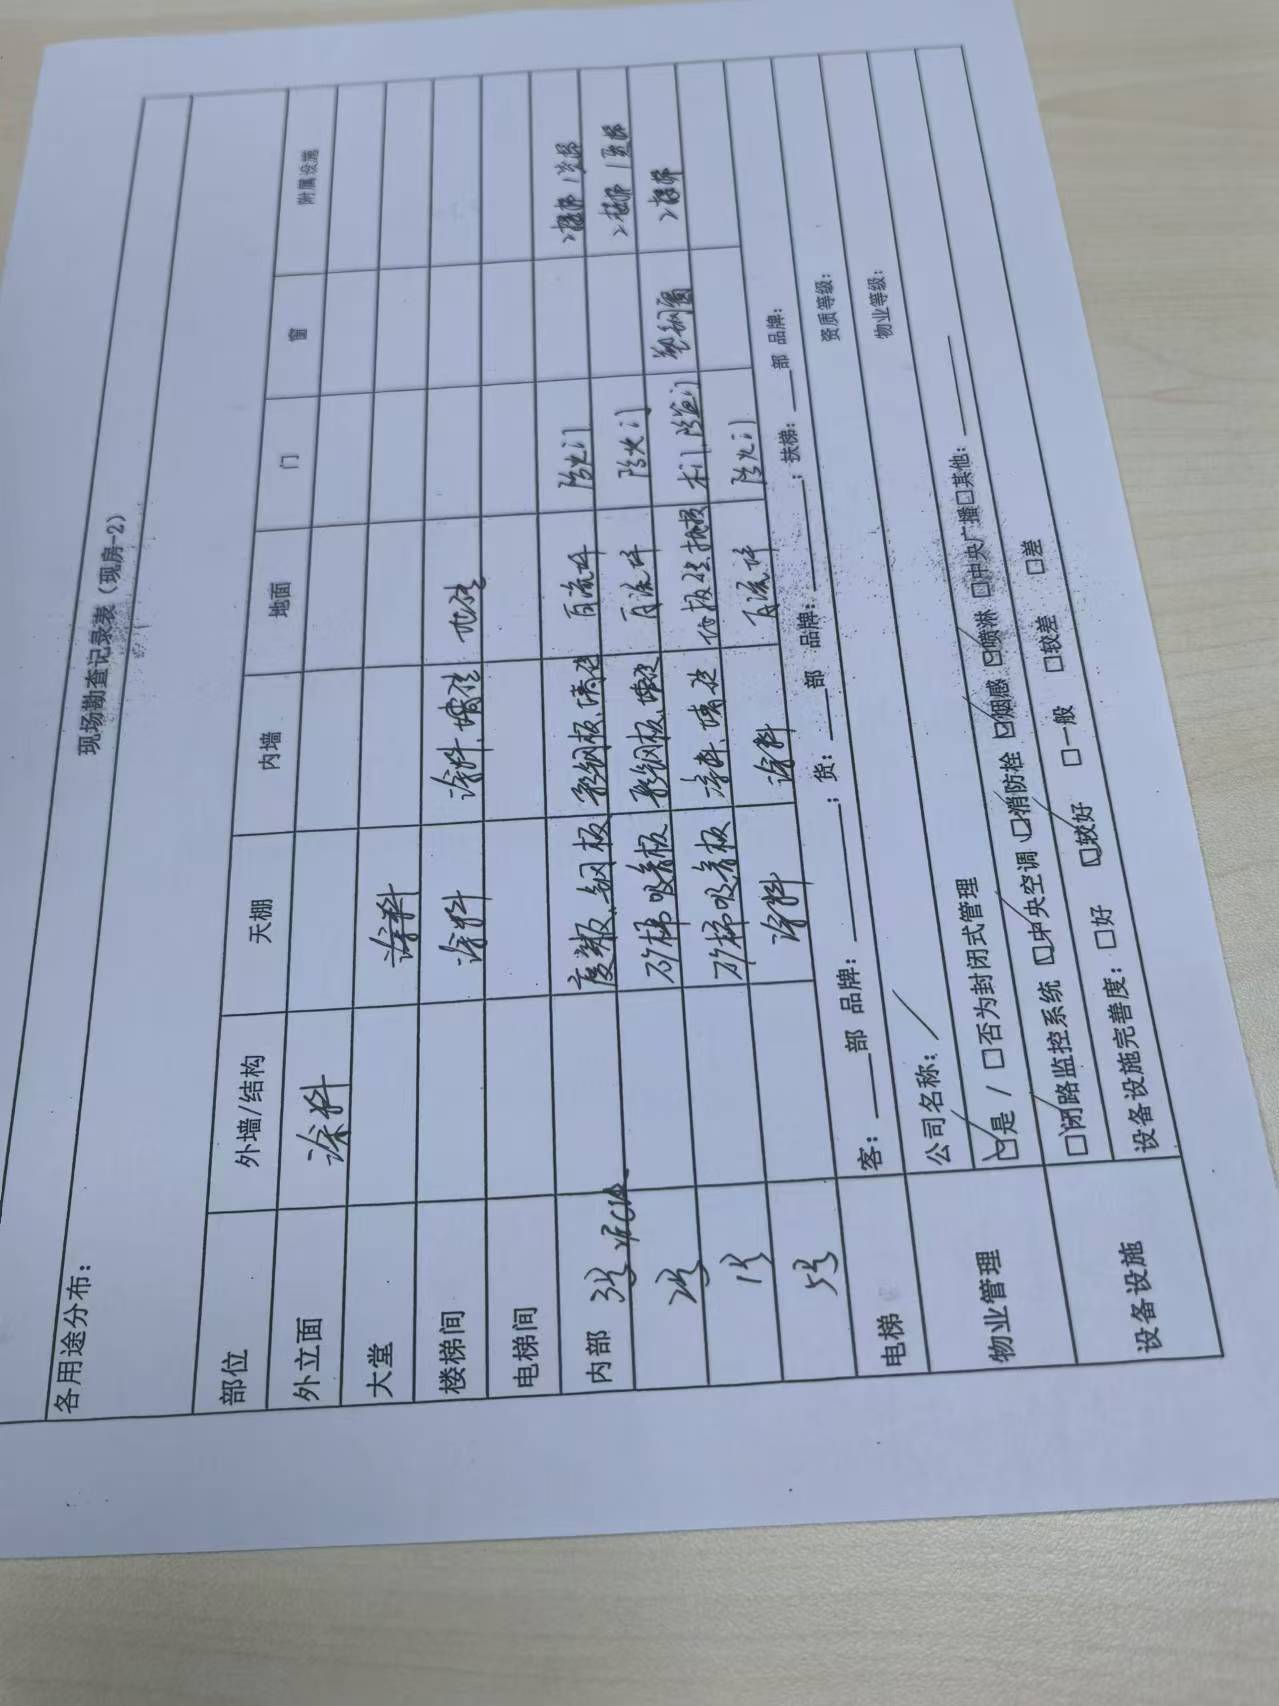 现场勘查记录表（现房-2）
各用途分布：
部位 外墙/结构 天棚 内墙 地面 门 窗 附属设施
外立面 涂料
大堂 涂料
楼梯间 涂料 涂料、墙砖 地砖
电梯间
内部 3号 钢板 彩钢板、墙砖 自流坪 防火门 2楼梯 1货梯
2号 矿棉吸音板 彩钢板、墙砖 自流坪 防火门 2楼梯 1货梯
1号 矿棉吸音板 涂料、墙砖 地板 木门、防盗门 塑钢窗 2楼梯
5号 涂料 涂料 自流坪 防火门
电梯 客：____部 品牌：________；货：____部 品牌：________；扶梯：____部 品牌：
物业管理 公司名称： / 资质等级：
☑是 / □否为封闭式管理 物业等级：
设备设施 ☑闭路监控系统 ☑中央空调 ☑消防栓 ☑烟感 ☑喷淋 □中央广播□其他：________
设备设施完善度： □好 ☑较好 □一般 □较差 □差